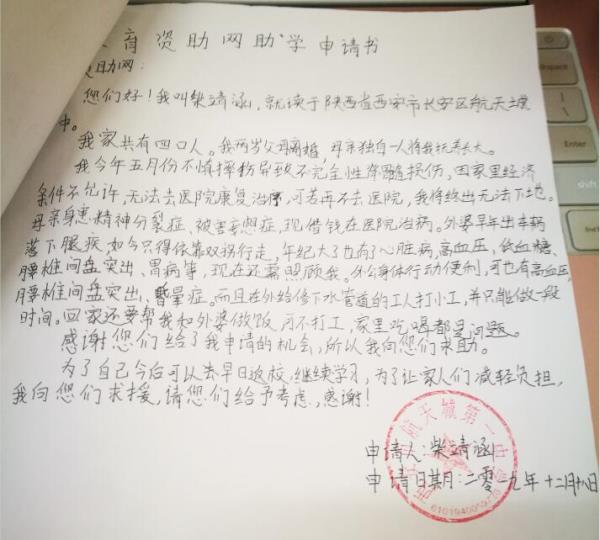 育资助网助学申请书
助网：
您们好！我叫柴靖涵，就读于陕西省西安市长安区航天城
中。
我家共有四口人。我两岁父母离婚，母亲独自一人将我抚养长大。
我今年五月份不慎摔粉导致不完全性脊髓损伤，因家里经济
条件不允许，无法去医院康复治疗，可若再不去医院，我将终生无法下地。
母亲身患精神分裂症、被害妄想症，现借钱在医院治病。外婆早年出车祸
落下腿疾，如今只得依靠双拐行走，年纪大了也有了心脏病，高血压，低血糖，
腰椎间盘突出、胃病等，现在还需照顾我。外公身体行动便利，可也有高血压，
腰椎间盘突出、晕症。而且在外给修下水管道的工人打小工，并只能做一段
时间。回家还要帮我和外婆做饭，可不打工，家里吃喝都是问题。
感谢您们给了我申请的机会，所以我向您们求助。
为了自己今后可以去早日返校，继续学习，为了让家人们减轻负担，
我向您们求援，请您们给予考虑，感谢！
申请人：柴靖涵
申请日期：二零一九年十二月十八日
航天城第一中